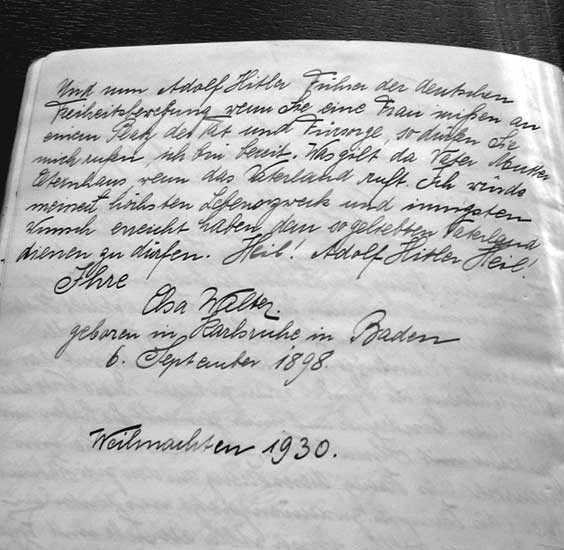 Und nun Adolf Hitler Führer der deutschen
Freiheitsbewegung wenn Sie eine Frau wißen an
einem Platz der Tat und Fürsorge, so dürfen Sie
mich rufen, ich bin bereit. Was gilt da Vater Mutter
Elternhaus wenn das Vaterland ruft. Ich würde
meinen höchsten Lebenszweck und innigsten
Wunsch erreicht haben dem so geliebten Vaterland
dienen zu dürfen. Heil! Adolf Hitler Heil!
Ihre
Elsa Walter.
geboren in Karlsruhe in Baden
6. September 1898.
Weihnachten 1930.